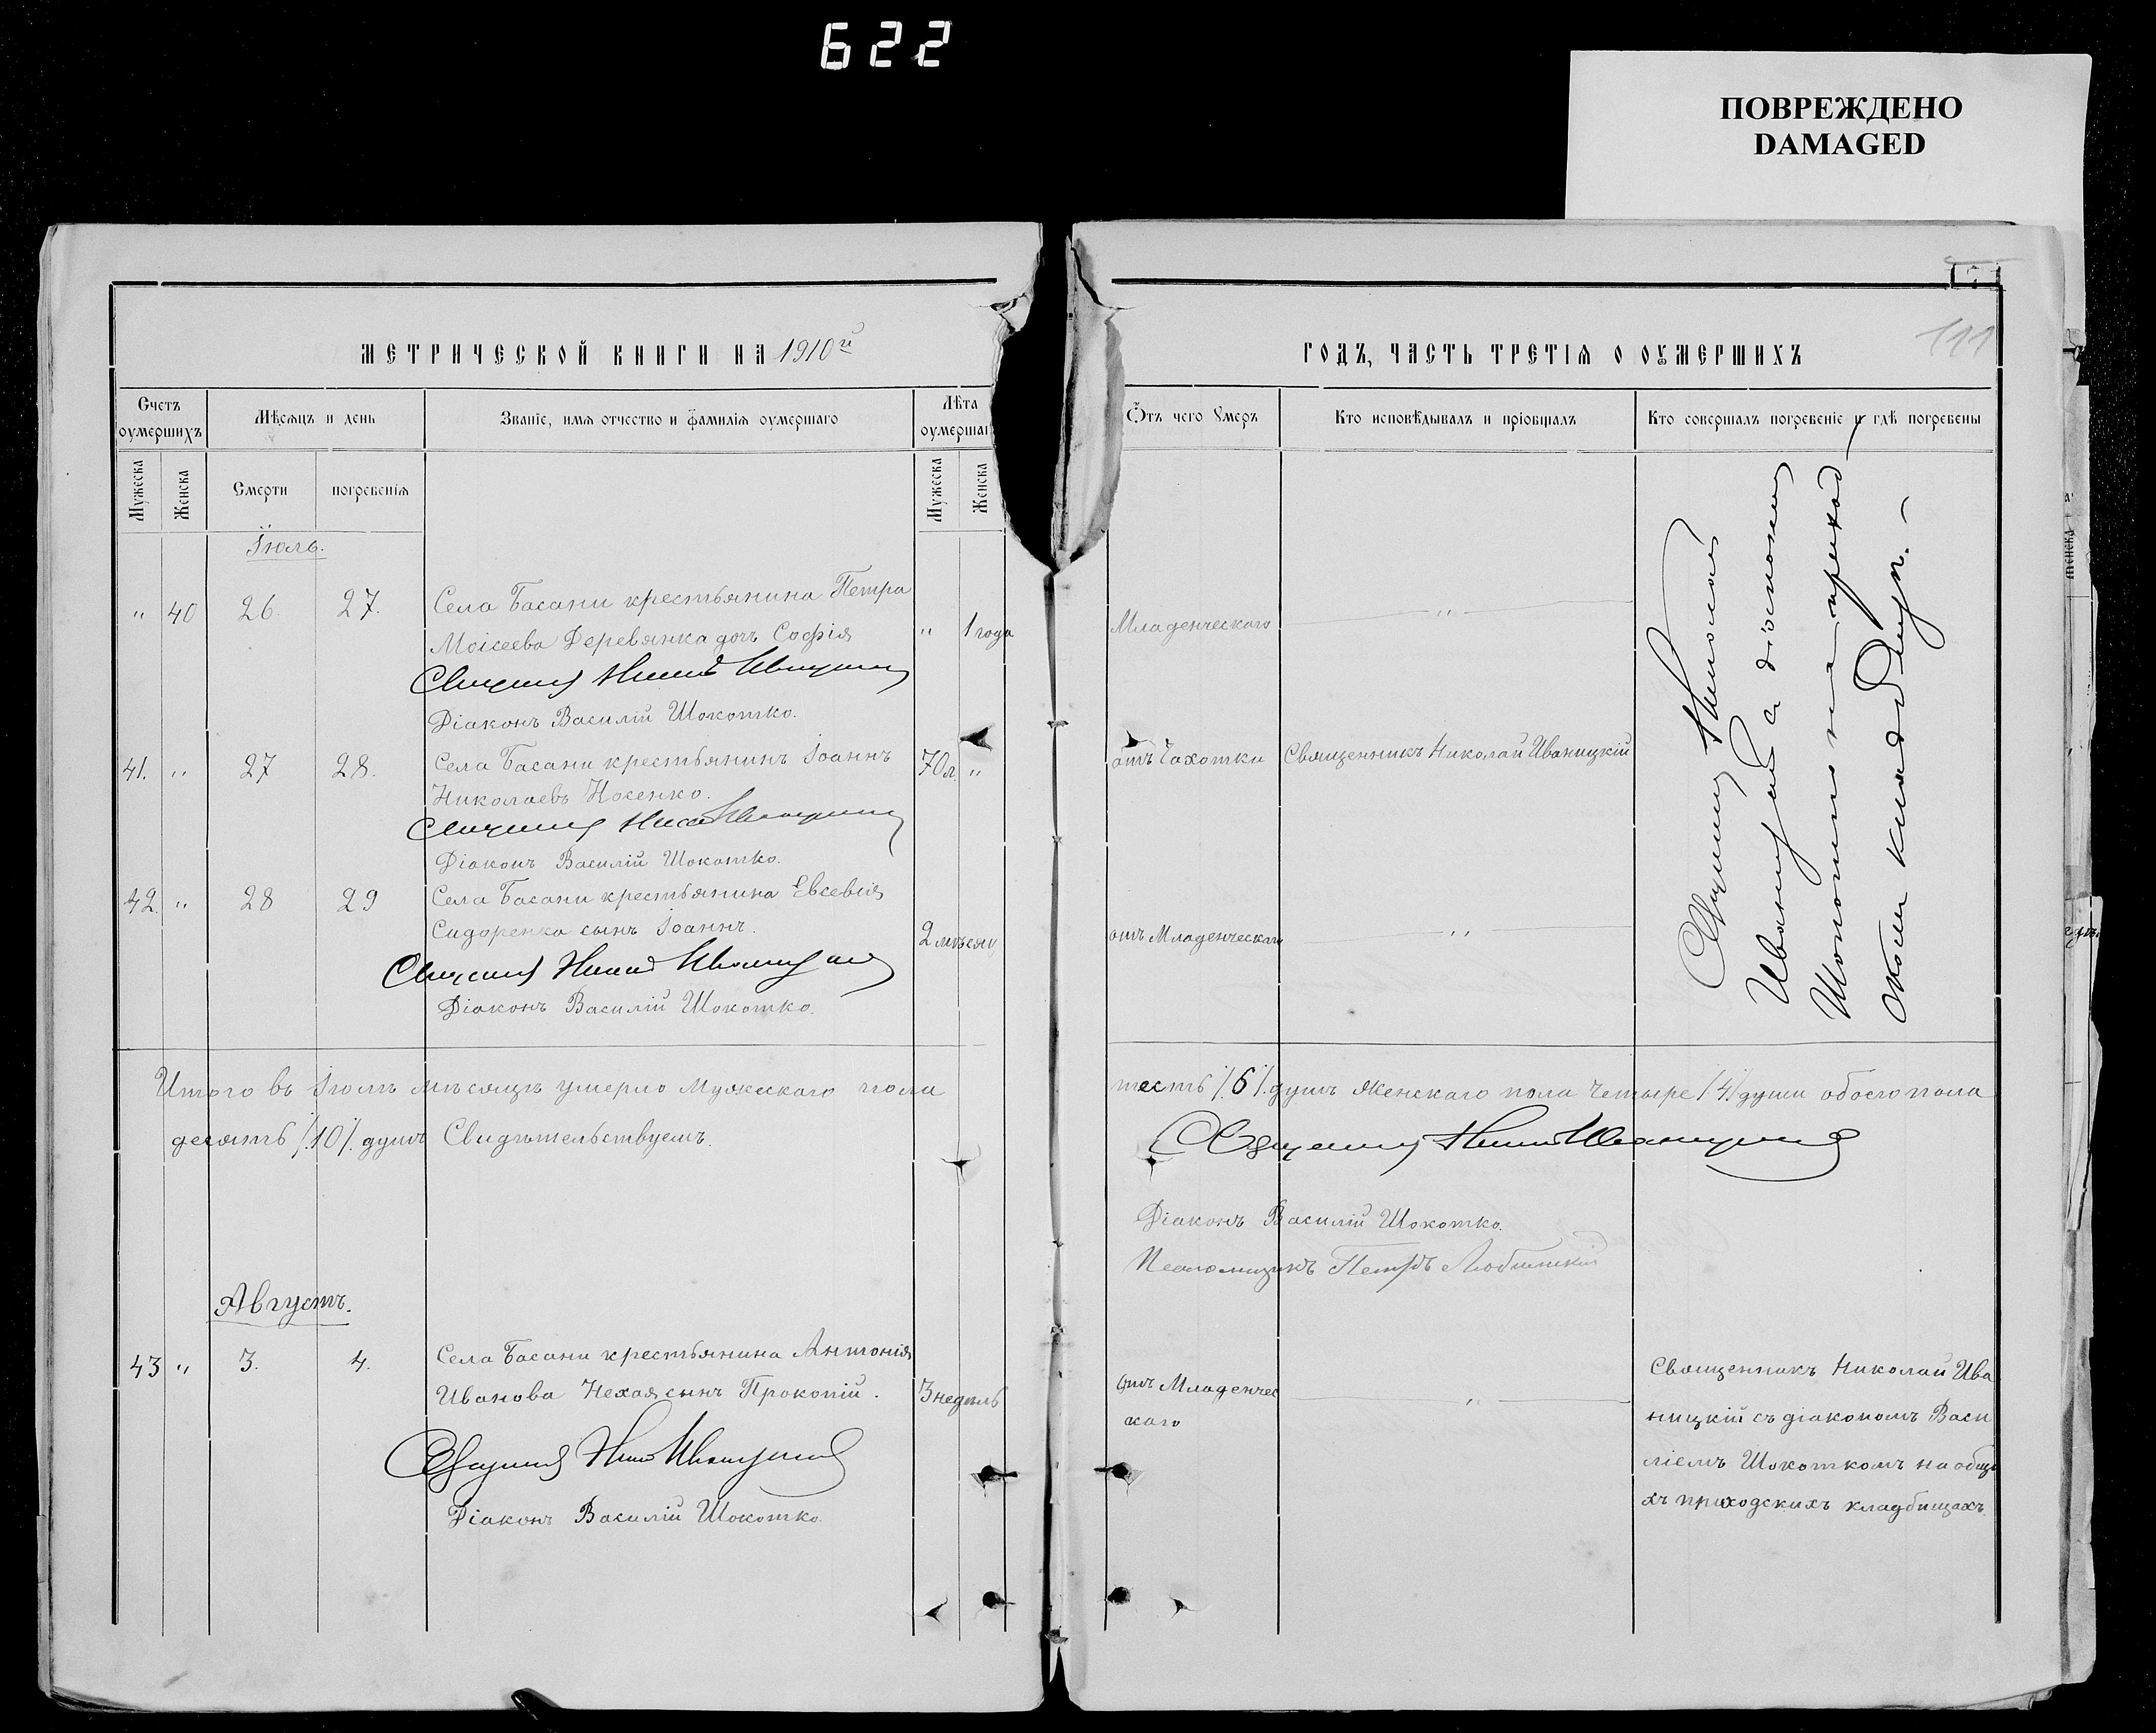 622
ПОВРЕЖДЕНО
DAMAGED
111
МЕТРИЧЕСКОЙ КНИГИ НА 1910й
ГОДЪ, ЧАСТЬ ТРЕТІѦ О ОУМЕРШИХЪ
Счетъ оумершихъ
Мѣсѧцъ и день
Званіе, имѧ отчество и фамилїѧ оумершаго
Лѣта оумершаг
Ѿтъ чего Умеръ
Кто исповѣдывалъ и пріобщалъ
Кто совершалъ погребеніе и гдѣ погребены
Мужеска
Женска
Смерти
погребеніѧ
Мужеска
Женска
Іюль.
" 40 26. 27. Села Басани крестьянина Петра
Моісеева Деревянка дочь Софія " 1 года Младенческаго "
Священникъ Николай Иваницкій
Діаконъ Василій Шокотко.
41. " 27 28. Села Басани крестьянинъ Іоаннъ 70 л. " отъ Чахотки Священникъ Николай Иваницкій
Николаевъ Носенко.
Священникъ Николай Иваницкій
Діаконъ Василій Шокотко.
42. " 28 29 Села Басани крестьянина Евсевія
Сидоренка сынъ Іоаннъ. 2 мѣсяц отъ Младенческаго "
Священникъ Николай Иваницкій
Діаконъ Василій Шокотко.
Священникъ Николай
Иваницкій съ діакономъ
Шокоткомъ на приход
Итого въ Іюлѣ мѣсяцѣ умерло Мужескаго пола шесть /.6/. душъ Женскаго пола Четыре /4/. души обоего пола
десять /.10/. душъ Свидѣтельствуемъ.
Священникъ Николай Иваницкій
Діаконъ Василій Шокотко.
Псаломщикъ Петръ
Августъ.
43 " 3. 4. Села Басани крестьянина Антонія
Иванова Нехая сынъ Прокопій. 3 недѣль
отъ Младенчес
каго
"
Священникъ Николай Ива
ницкій съ діакономъ Васи
ліемъ Шокоткомъ на общи
хъ приходскихъ кладбищахъ.
Священникъ Николай Иваницкій
Діаконъ Василій Шокотко.